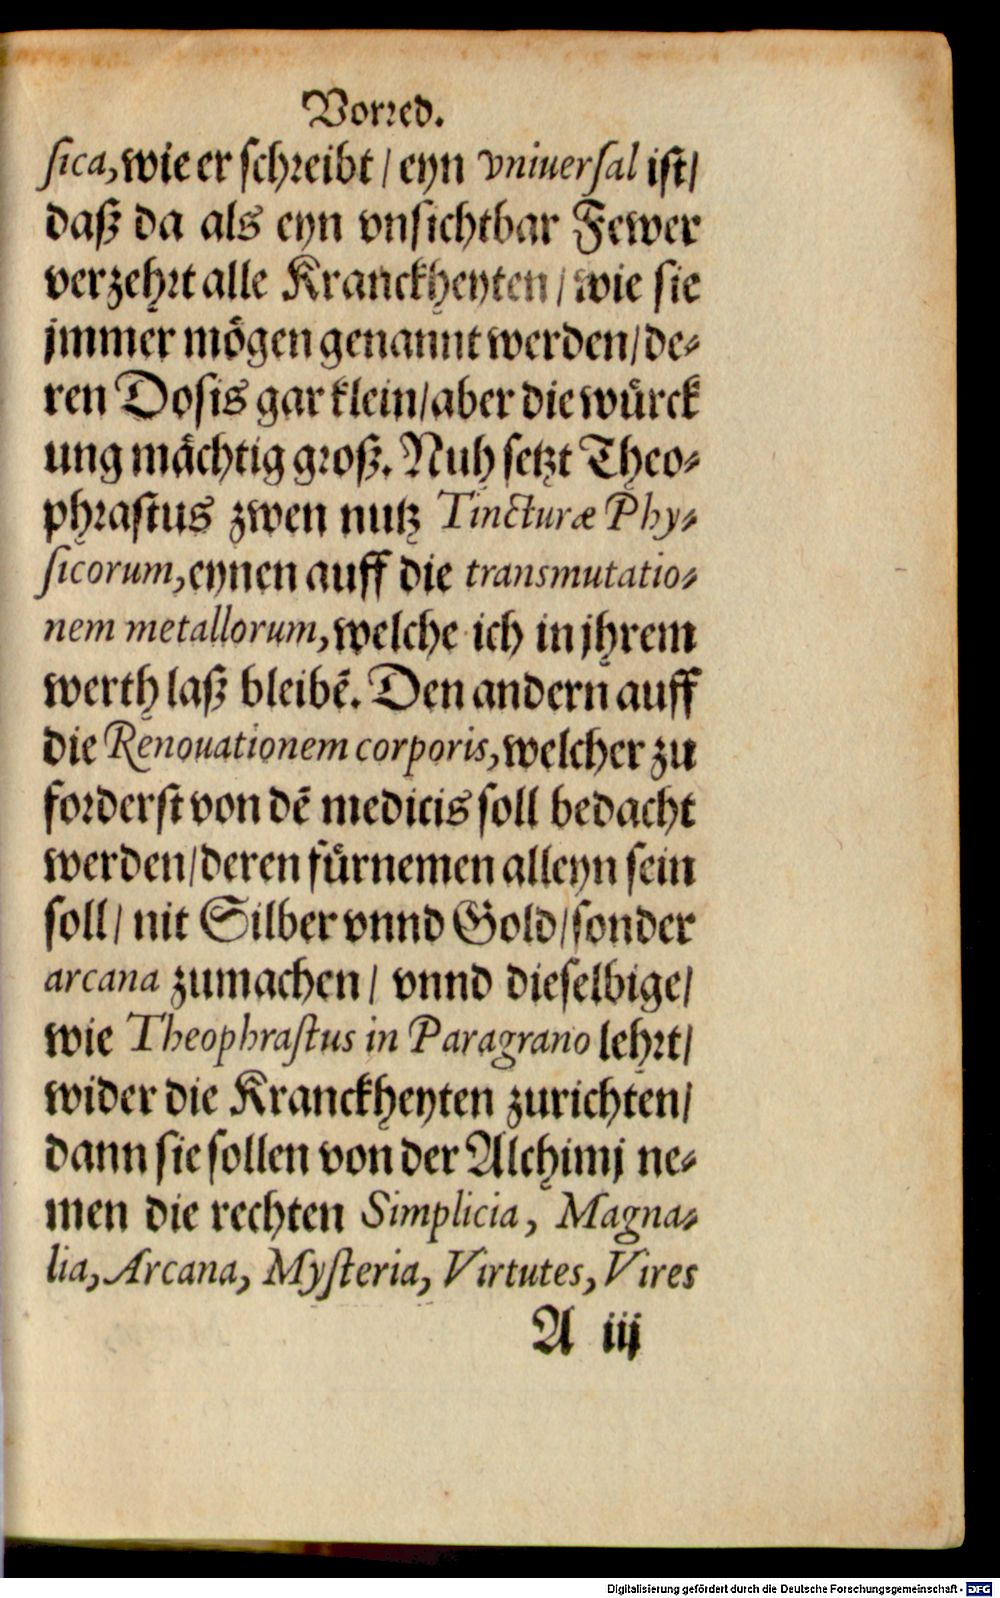 Vorred.
sica, wie er schreibt / eyn vniuersal ist /
daß da als eyn vnsichtbar Fewer
verzehrt alle Kranckheyten / wie sie
jmmer mögen genannt werden / de-
ren Dosis gar klein / aber die würck
ung mächtig groß. Nuh setzt Theo-
phrastus zwen nutz Tincturæ Phy-
sicorum, eynen auff die transmutatio-
nem metallorum, welche ich in jhrem
werth laß bleibẽ. Den andern auff
die Renouationem corporis, welcher zu
forderst von dẽ medicis soll bedacht
werden / deren fürnemen alleyn sein
soll / nit Silber vnnd Gold / sonder
arcana zumachen / vnnd dieselbige /
wie Theophrastus in Paragrano lehrt /
wider die Kranckheyten zurichten /
dann sie sollen von der Alchimj ne-
men die rechten Simplicia, Magna-
lia, Arcana, Mysteria, Virtutes, Vires
A iij
Digitalisierung gefördert durch die Deutsche Forschungsgemeinschaft - DFG